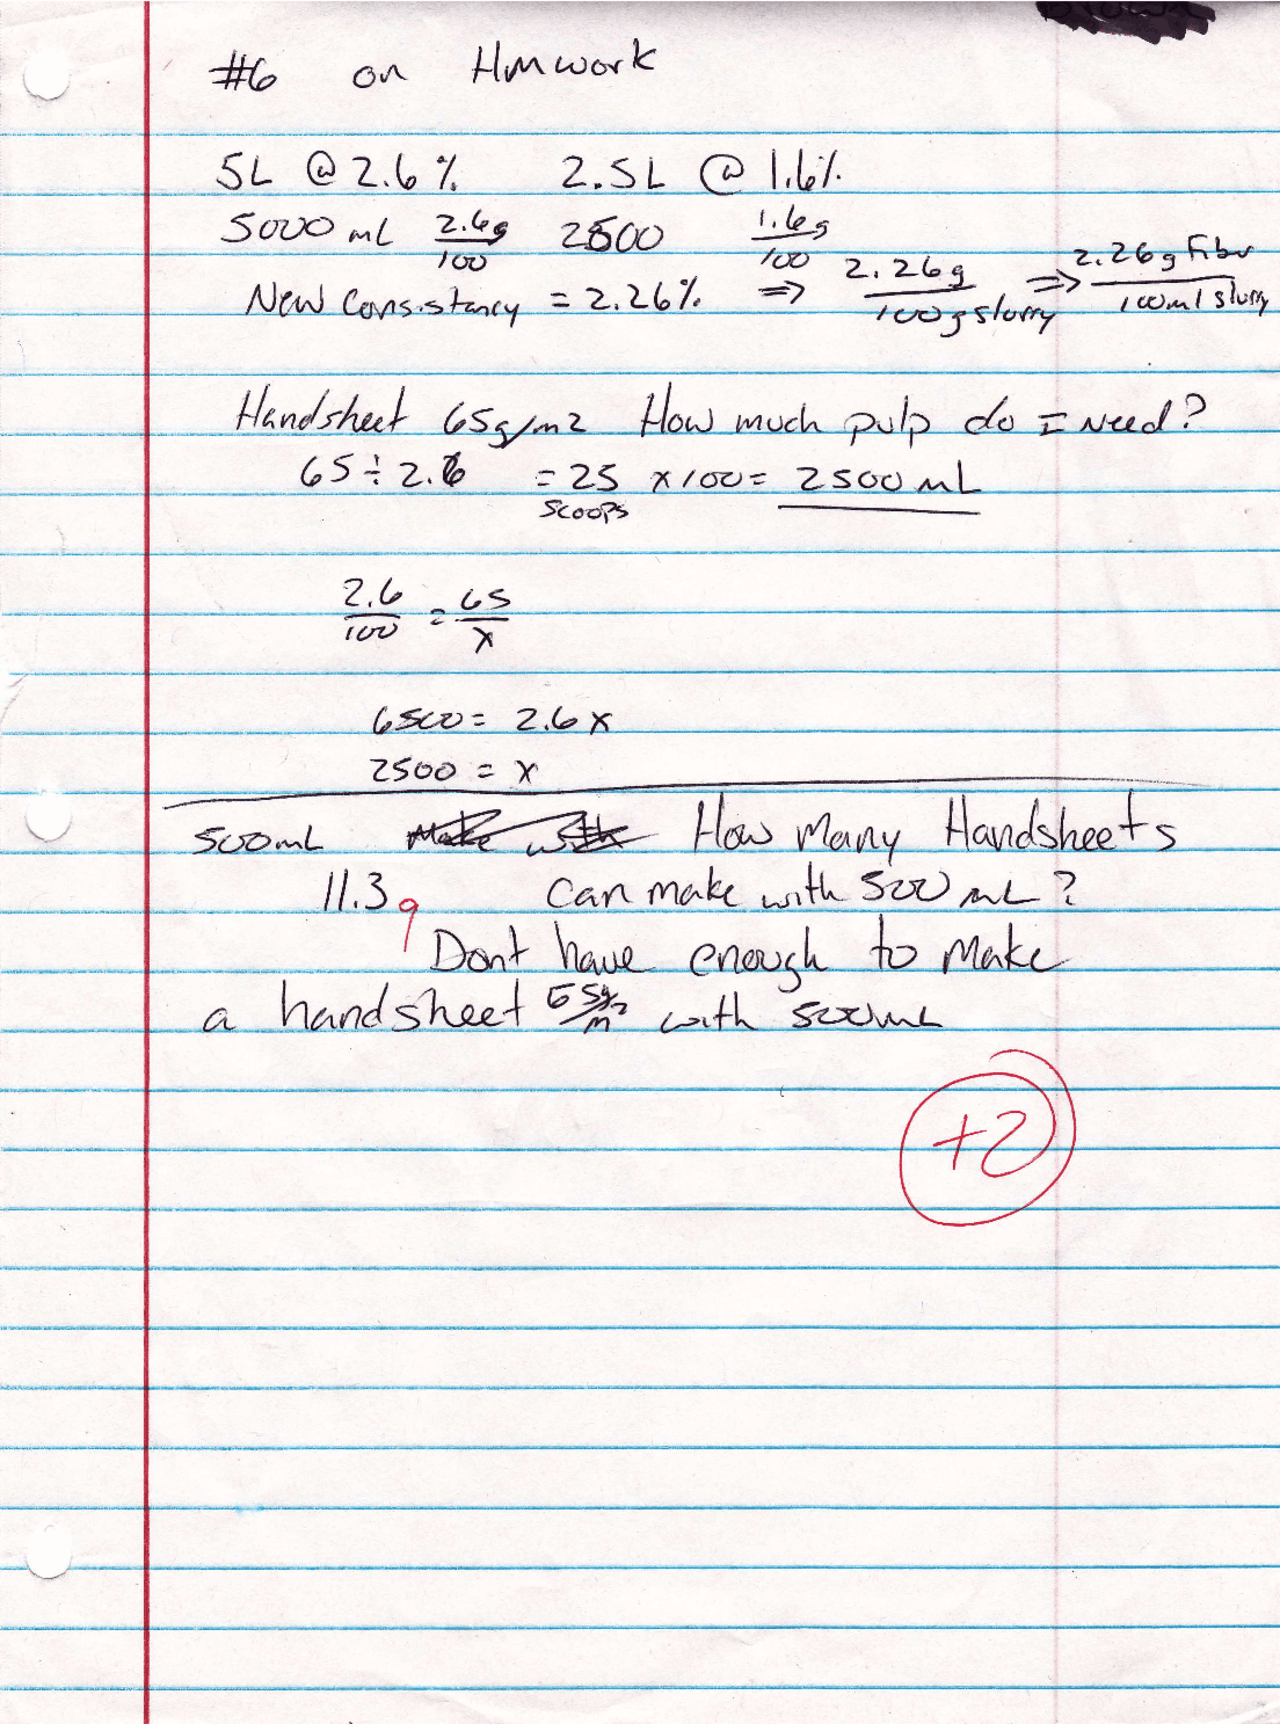 #6 on Hmwork
5L @ 2.6% 2.5L @ 1.6%
5000 mL 2.6g/100 2500 1.6g/100
New Consistancy = 2.26% => 2.26g/100g slurry => 2.26g Fiber/100ml slurry
Handsheet 65g/m2 How much pulp do I Need?
65 ÷ 2.6 = 25 x 100 = 2500 mL
scoops
2.6/100 = 65/x
6500 = 2.6 x
2500 = x
500mL How Many Handsheets
11.3g Can make with 500 mL?
Dont have enough to Make
a handsheet 65g/m2 with 500mL
+2